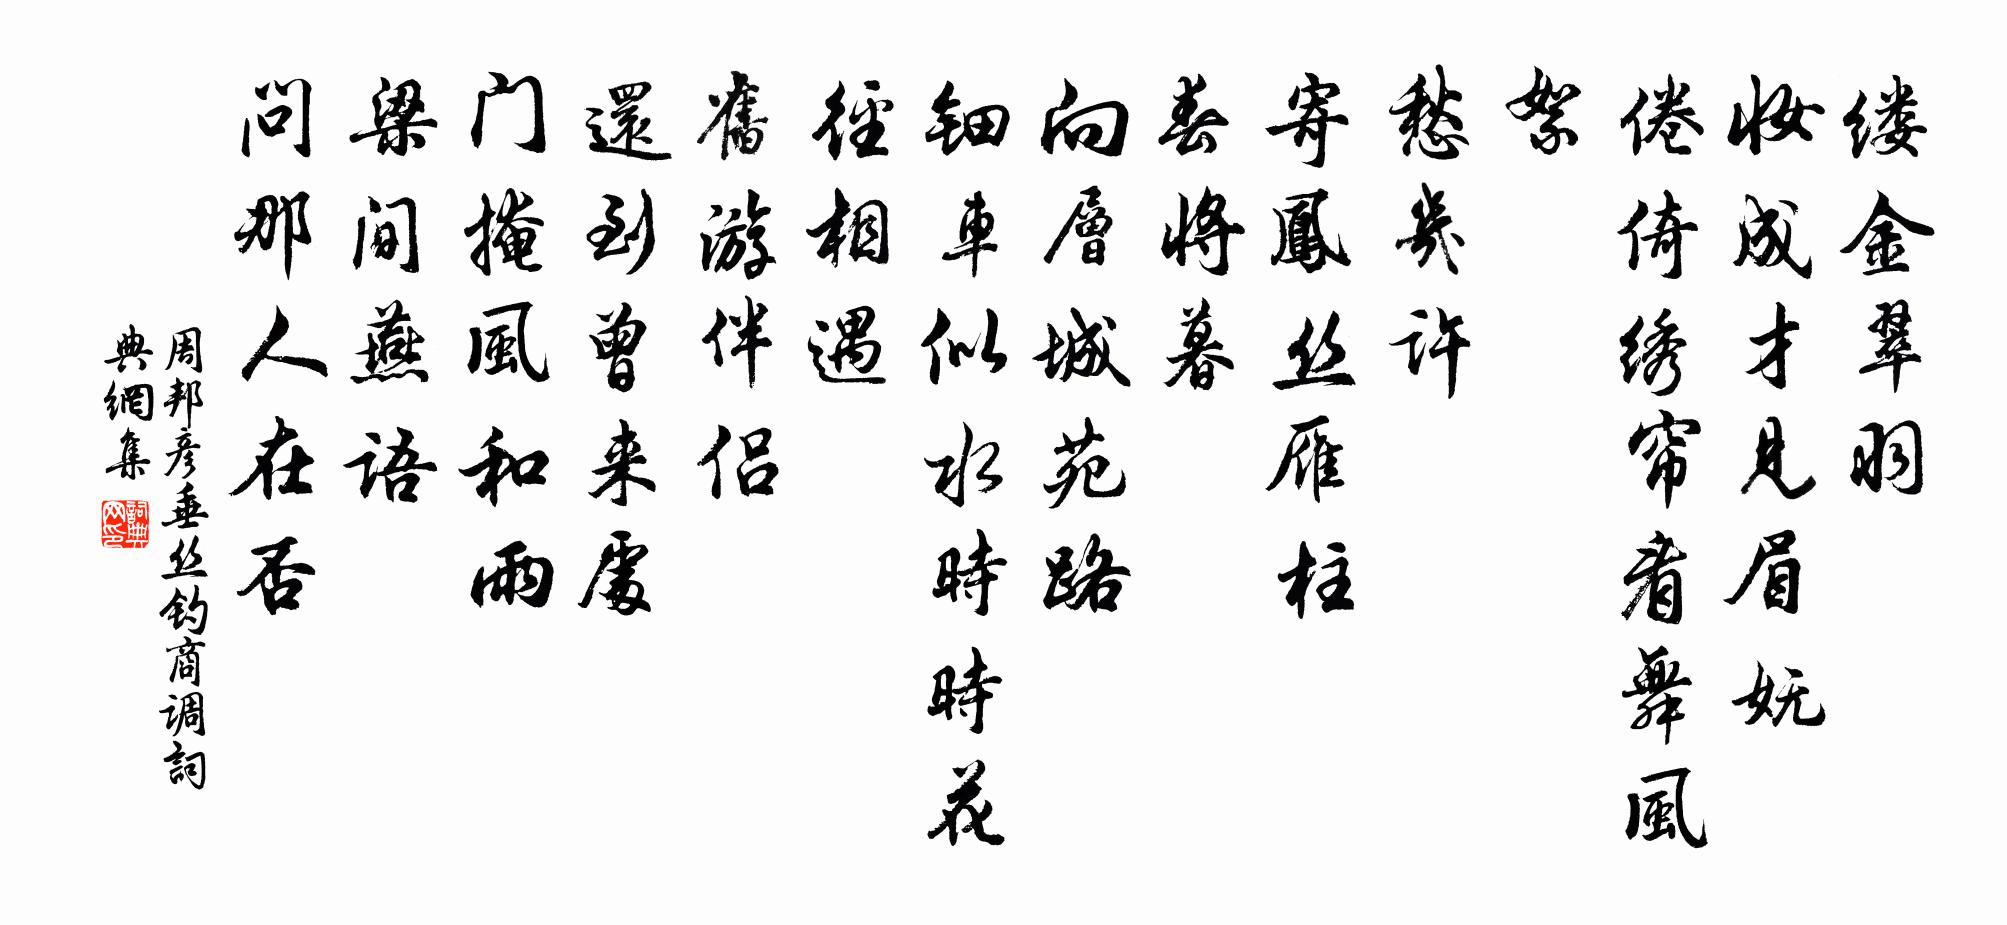 缕金翠羽
妆成才见眉妩
倦倚绣帘看舞風
絮
愁幾许
寄鳳丝雁柱
春將暮
向層城苑路
钿車似水時時花
徑相遇
舊游伴侣
還到曾来處
门掩風和雨
梁间燕语
问那人在否
周邦彦垂丝钓商调詞
典網集
詞典网印